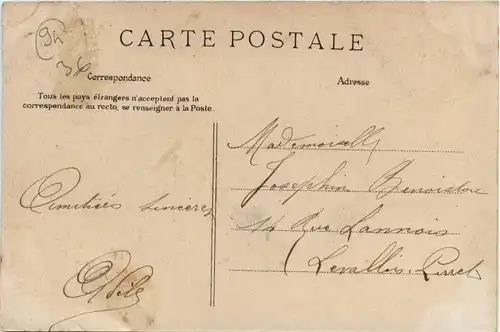 94
36
CARTE POSTALE
Correspondance
Adresse
Tous les pays étrangers n'acceptent pas la
correspondance au recto, se renseigner à la Poste.
Mademoiselle
Josephin
Amitiés sincères
14 Rue Lannois
Levallois-Perret